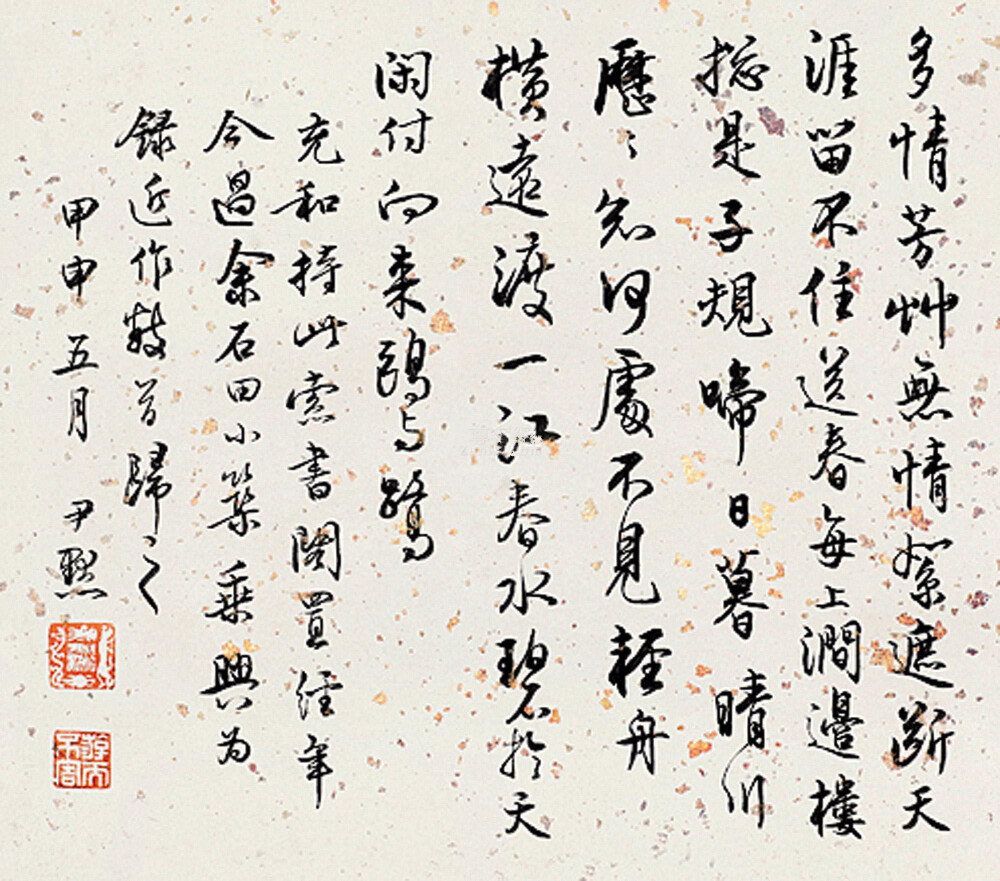 多情芳艸無情絮遮斷天
涯留不住送春每上澗邊樓
摠是子規啼日暮晴川
歷〻知何處不見輕舟
橫遠渡一江春水碧於天
閑付向來鷗与鷺
充和持此索書閣置經年
今過余石田小築乘興为
錄近作數首歸之
甲申五月 尹默